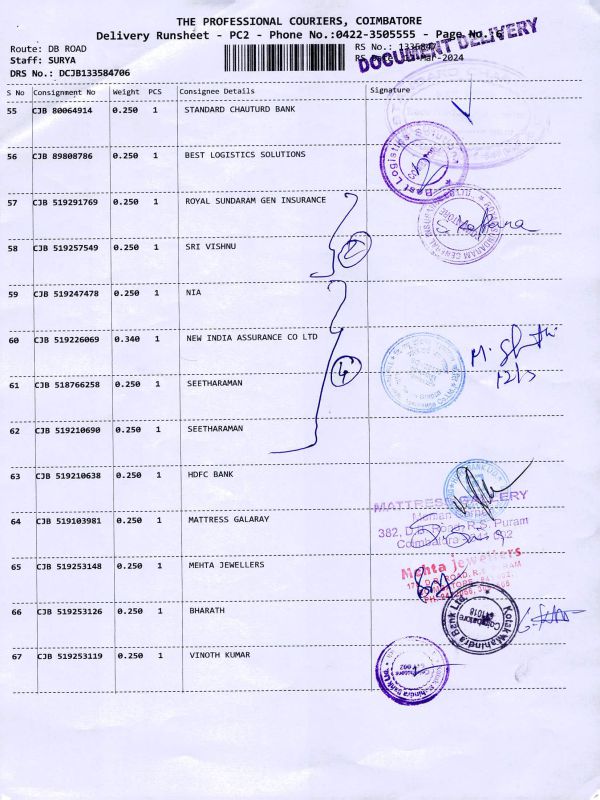 THE PROFESSIONAL COURIERS, COIMBATORE
Delivery Runsheet - PC2 - Phone No.:0422-3505555 - Page No.
Route: DB ROAD
RS No.:
Staff: SURYA
DRS No.: DCJB133584706
-Mar-2024
DOCUMENT DELIVERY
S No Consignment No Weight PCS Consignee Details Signature
55 CJB 80064914 0.250 1 STANDARD CHAUTURD BANK
56 CJB 89808786 0.250 1 BEST LOGISTICS SOLUTIONS
Best Logistics
57 CJB 519291769 0.250 1 ROYAL SUNDARAM GEN INSURANCE
58 CJB 519257549 0.250 1 SRI VISHNU
2
59 CJB 519247478 0.250 1 NIA
60 CJB 519226069 0.340 1 NEW INDIA ASSURANCE CO LTD
12/3
61 CJB 518766258 0.250 1 SEETHARAMAN
4
62 CJB 519210690 0.250 1 SEETHARAMAN
63 CJB 519210638 0.250 1 HDFC BANK
MATTRESS GALLERY
64 CJB 519103981 0.250 1 MATTRESS GALARAY
382, D.B. Road, R.S. Puram
65 CJB 519253148 0.250 1 MEHTA JEWELLERS
Mehta jewellers
66 CJB 519253126 0.250 1 BHARATH
Kotak Mahindra Bank Ltd.
Coimbatore
67 CJB 519253119 0.250 1 VINOTH KUMAR